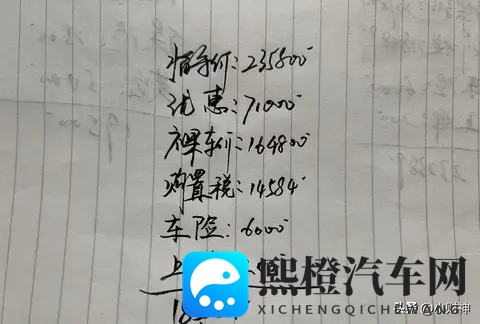 指导价:235800
优惠:71000
裸车价:164800
购置税:14584
车险:6000
上
熙橙汽车网
XICHENGQICHEWANG
头条 @小呗神